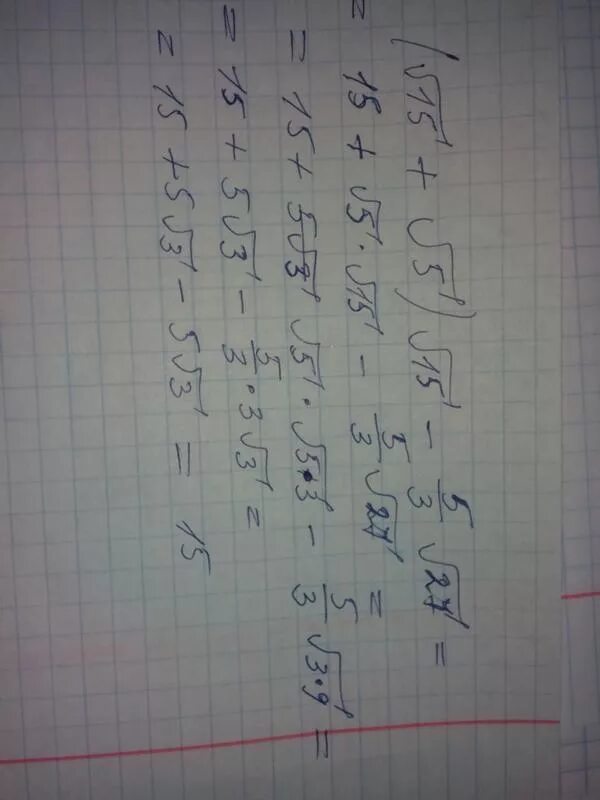 (√15 + √5)√15 − 5/3 √27 =
= 15 + √5 · √15 − 5/3 √27 =
= 15 + 5√3 √5 · √5·3 − 5/3 √3·9 =
= 15 + 5√3 − 5/3 · 3√3 =
= 15 + 5√3 − 5√3 = 15